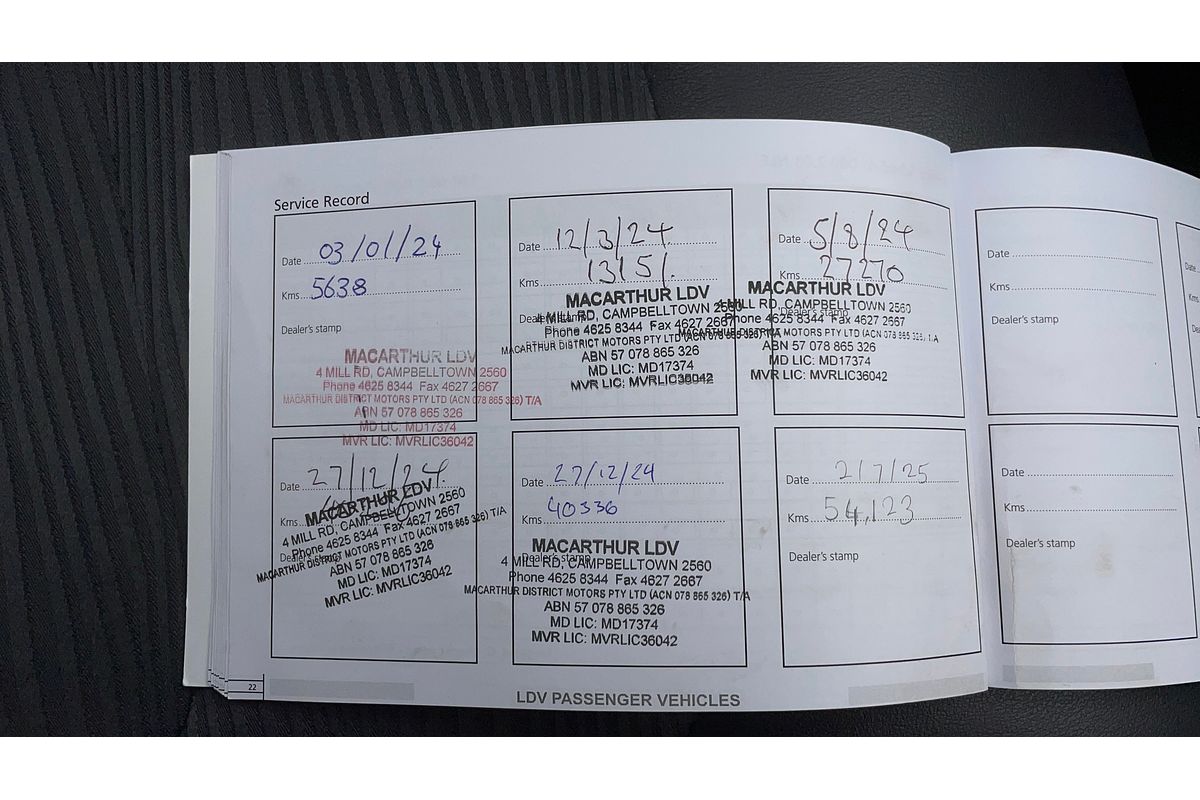 Service Record
Date 03/01/24
Kms 5638
Dealer's stamp
MACARTHUR LDV
4 MILL RD, CAMPBELLTOWN 2560
Phone 4625 8344 Fax 4627 2667
MACARTHUR DISTRICT MOTORS PTY LTD (ACN 078 865 326) T/A
ABN 57 078 865 326
MD LIC: MD17374
MVR LIC: MVRLIC36042
Date 12/3/24
Kms 13151.
Dealer's stamp
MACARTHUR LDV
4 MILL RD, CAMPBELLTOWN 2560
Phone 4625 8344 Fax 4627 2667
MACARTHUR DISTRICT MOTORS PTY LTD (ACN 078 865 326) T/A
ABN 57 078 865 326
MD LIC: MD17374
MVR LIC: MVRLIC36042
Date 5/8/24
Kms 27270
Dealer's stamp
MACARTHUR LDV
4 MILL RD, CAMPBELLTOWN 2560
Phone 4625 8344 Fax 4627 2667
MACARTHUR DISTRICT MOTORS PTY LTD (ACN 078 865 326) T/A
ABN 57 078 865 326
MD LIC: MD17374
MVR LIC: MVRLIC36042
Date
Kms
Dealer's stamp
Date 27/12/24.
Kms
Dealer's stamp
MACARTHUR LDV
4 MILL RD, CAMPBELLTOWN 2560
Phone 4625 8344 Fax 4627 2667
MACARTHUR DISTRICT MOTORS PTY LTD (ACN 078 865 326) T/A
ABN 57 078 865 326
MD LIC: MD17374
MVR LIC: MVRLIC36042
Date 27/12/24
Kms 40336
Dealer's stamp
MACARTHUR LDV
4 MILL RD, CAMPBELLTOWN 2560
Phone 4625 8344 Fax 4627 2667
MACARTHUR DISTRICT MOTORS PTY LTD (ACN 078 865 326) T/A
ABN 57 078 865 326
MD LIC: MD17374
MVR LIC: MVRLIC36042
Date 2/7/25
Kms 54,123
Dealer's stamp
Date
Kms
Dealer's stamp
22
LDV PASSENGER VEHICLES